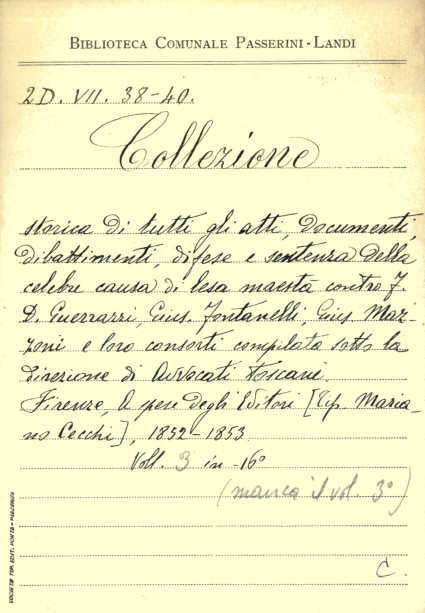 BIBLIOTECA COMUNALE PASSERINI-LANDI
2D. VII. 38-40.
Collezione
storica di tutti gli atti, documenti,
dibattimenti, difese e sentenza della
celebre causa di lesa maestà contro F.
D. Guerrazzi, Gius. Fontanelli, Gius. Maz-
zoni e loro consorti compilata sotto la
direzione di Avvocati toscani.
Firenze, A spese degli Editori [Tip. Maria-
no Cecchi], 1852-1853
Voll. 3 in -16°
(manca il vol. 3°)
C.
SOCIETÀ TIP. EDIT. PORTA - PIACENZA